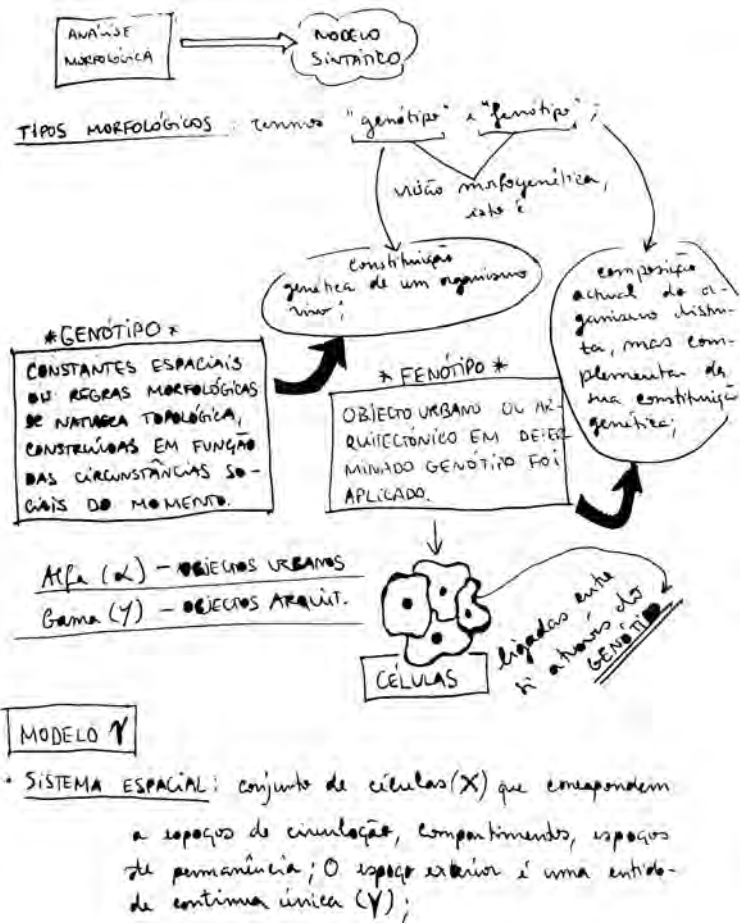 ANÁLISE
MORFOLÓGICA
MODELO
SINTÁTICO
TIPOS MORFOLÓGICOS: termos "genótipo" e "fenótipo";
visão morfogenética,
isto é
constituição
genética de um organismo
vivo;
composição
actual do or-
ganismo distin-
ta, mas com-
plementar da
sua constituição
genética;
*GENÓTIPO*
CONSTANTES ESPACIAIS
OU REGRAS MORFOLÓGICAS
DE NATUREZA TOPOLÓGICA,
CONSTRUÍDAS EM FUNÇÃO
DAS CIRCUNSTÂNCIAS SO-
CIAIS DO MOMENTO.
* FENÓTIPO *
OBJECTO URBANO OU AR-
QUITECTÓNICO EM DETER
MINADO GENÓTIPO FOI
APLICADO.
Alfa (α) – OBJECTOS URBANOS
Gama (γ) – OBJECTOS ARQUIT.
CÉLULAS
ligadas entre
si através do
GENÓTIPO
MODELO γ
• SISTEMA ESPACIAL: conjunto de células (X) que correspondem
a espaços de circulação, compartimentos, espaços
de permanência; O espaço exterior é uma entida-
de contínua única (Y);